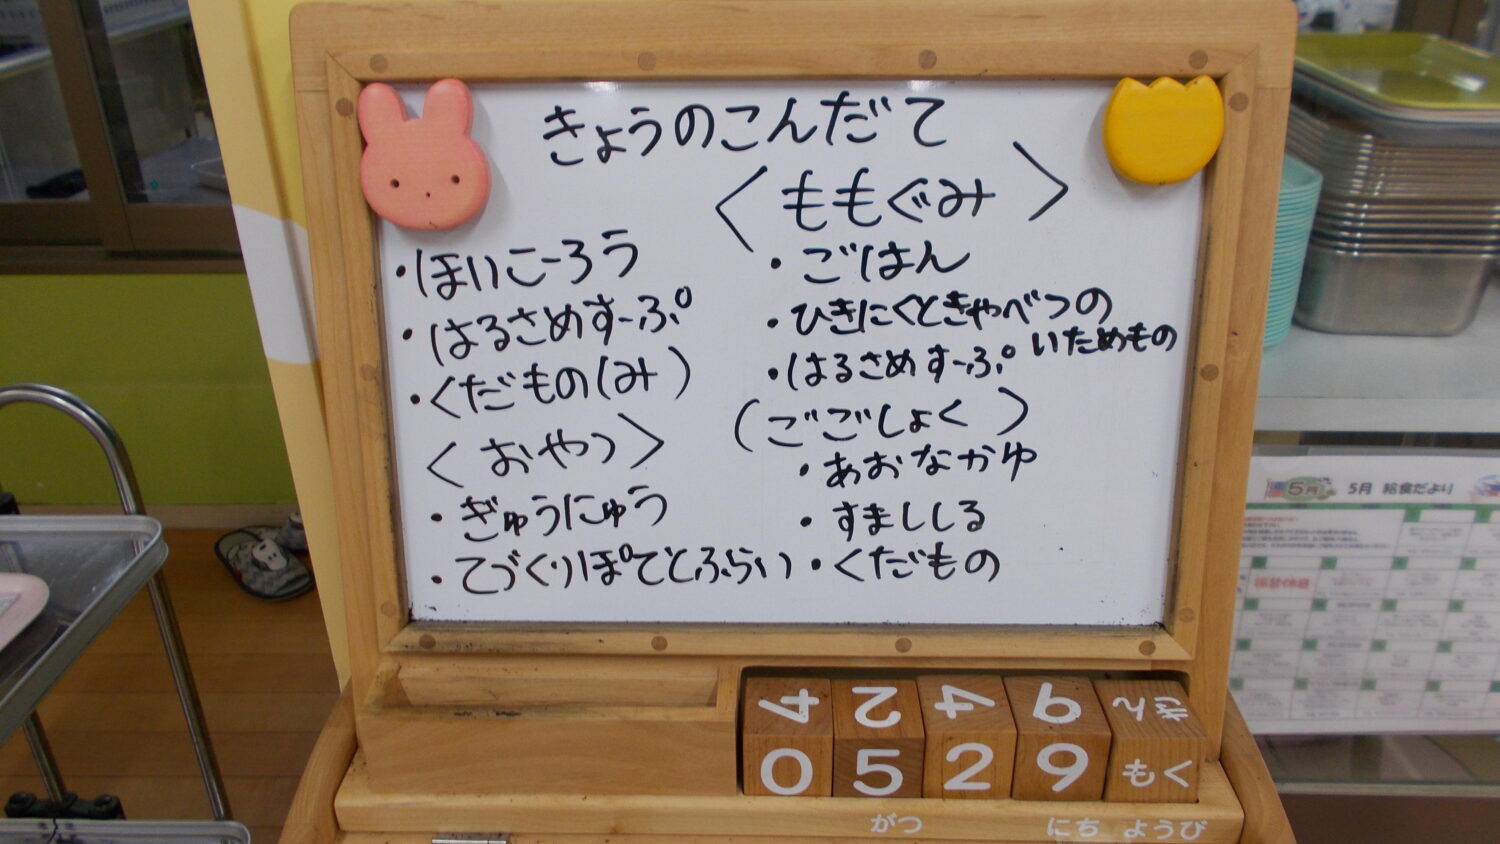 きょうのこんだて
・ほいこーろう
・はるさめすーぷ
・くだもの(み)
<おやつ>
・ぎゅうにゅう
・てづくりぽてとふらい
<ももぐみ>
・ごはん
・ひきにくときゃべつの
いためもの
・はるさめすーぷ
(ごごしょく)
・あおなかゆ
・すまししる
・くだもの
4 2 4 9 きん
0 5 2 9 もく
がつ にち ようび
5月 5月 給食だより